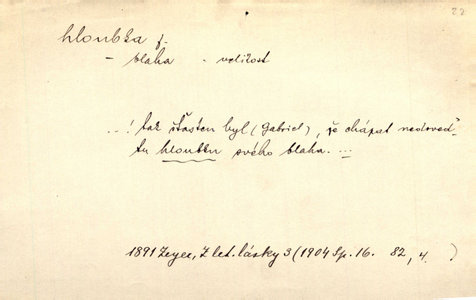 22
hloubka f.
– blaha - velikost
...! tak šťasten byl (Gabriel), že chápat nedoved'
tu hloubku svého blaha. ...
1891 Zeyer, Z let. lásky 3 (1904 Sp. 16. 82, 4. )